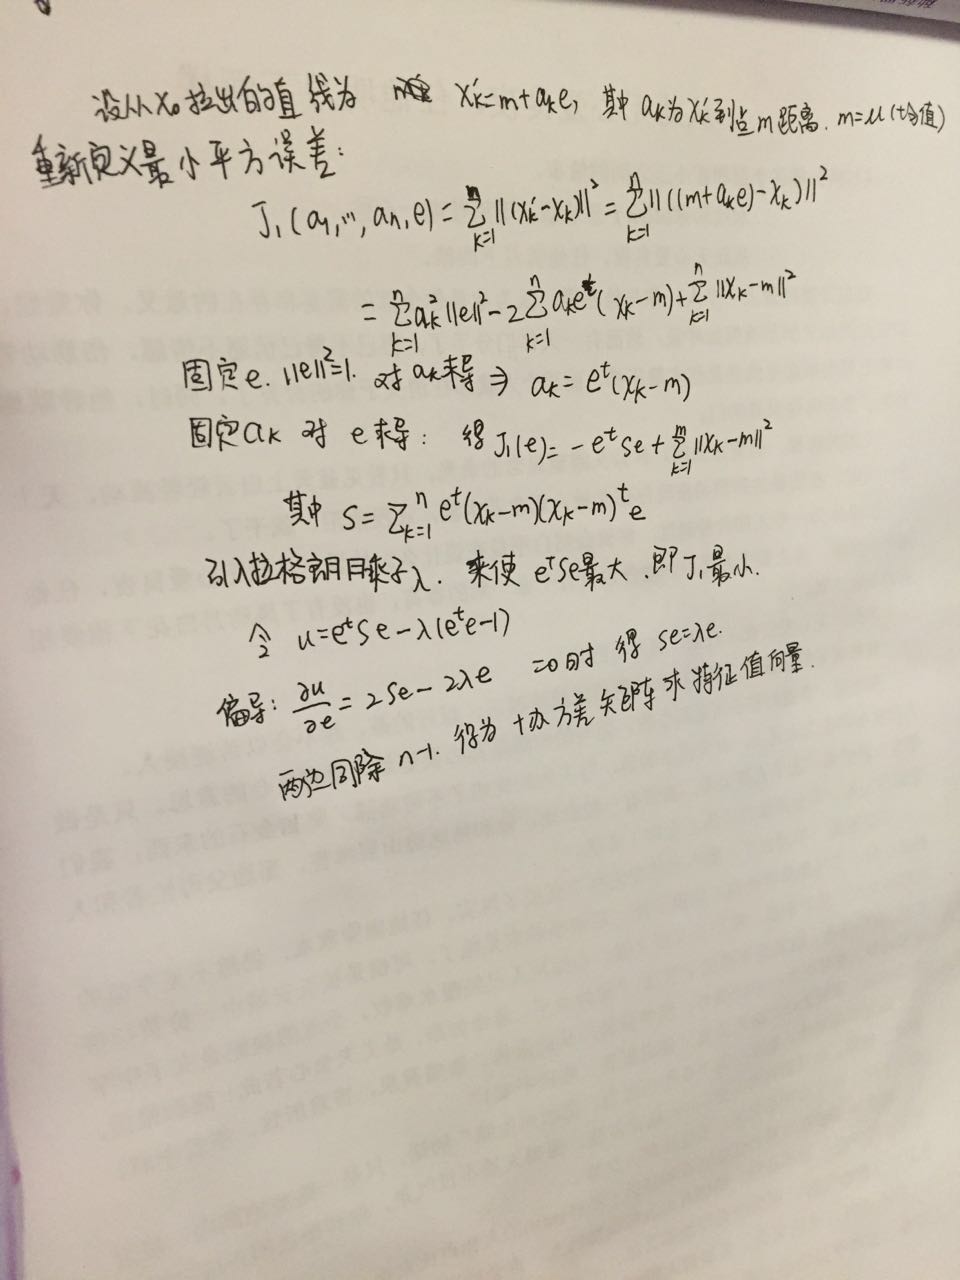 设从x₀拉出的直线为 x'ₖ=m+aₖe, 其中aₖ为x'ₖ到点m距离. m=μ(均值)
重新定义最小平方误差:
J₁(a₁,…,aₙ,e) = Σₖ₌₁ⁿ||(x'ₖ-xₖ)||² = Σₖ₌₁ⁿ||((m+aₖe)-xₖ)||²
= Σₖ₌₁ⁿaₖ²||e||² - 2Σₖ₌₁ⁿaₖeᵗ(xₖ-m) + Σₖ₌₁ⁿ||xₖ-m||²
固定e. ||e||²=1. 对aₖ求导 ⇒ aₖ = eᵗ(xₖ-m)
固定aₖ 对e求导: 得J₁(e) = -eᵗSe + Σₖ₌₁ⁿ||xₖ-m||²
其中 S = Σₖ₌₁ⁿ eᵗ(xₖ-m)(xₖ-m)ᵗe
引入拉格朗日乘子λ. 来使 eᵗSe最大. 即J₁最小.
令 u=eᵗSe-λ(eᵗe-1)
偏导: ∂u/∂e = 2Se-2λe =0时 得 Se=λe.
两边同除 n-1. 得为 协方差矩阵求特征值向量.